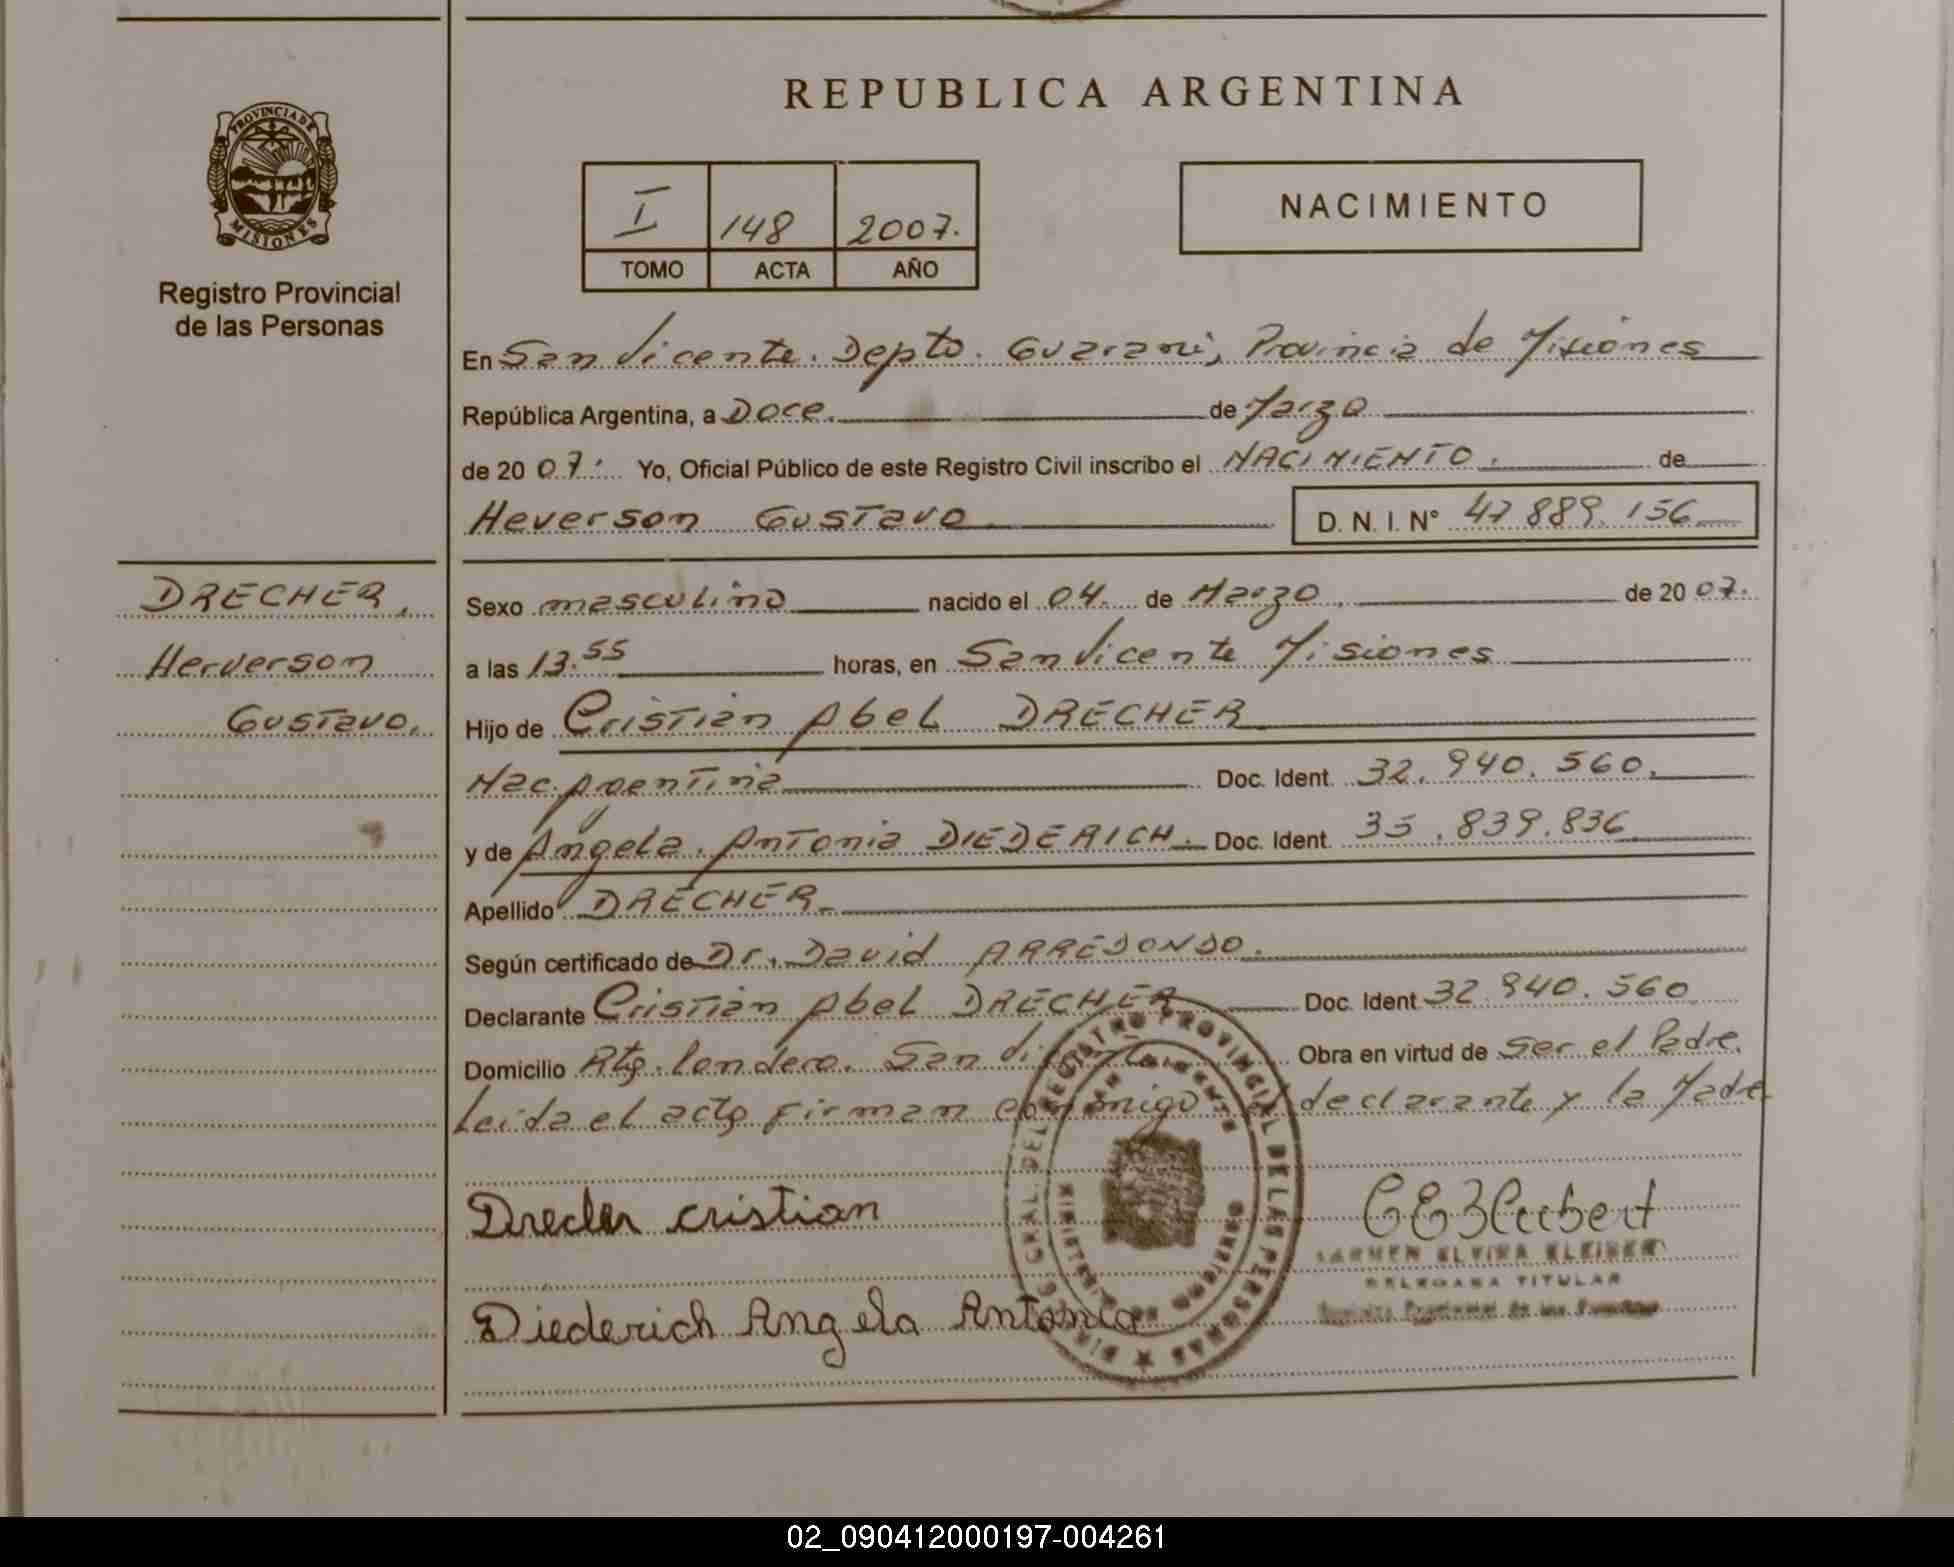 PROVINCIA DE
MISIONES
Registro Provincial
de las Personas
REPUBLICA ARGENTINA
I 148 2007.
TOMO ACTA AÑO
NACIMIENTO
En San Vicente. Depto. Guarani, Provincia de Misiones
República Argentina, a Doce. de Marzo
de 20 07. Yo, Oficial Público de este Registro Civil inscribo el NACIMIENTO. de
Heverson Gustavo D. N. I. N° 47 889. 156
DRECHER.
Herverson
Gustavo.
Sexo masculino nacido el 04. de Marzo. de 20 07.
a las 13.55 horas, en San Vicente Misiones
Hijo de Cristian Abel DRECHER
Nac. Argentina Doc. Ident. 32. 940. 560.
y de Angela. Antonia DIEDERICH. Doc. Ident. 35.839.836
Apellido DRECHER
Según certificado de Dr. David ARREDONDO.
Declarante Cristian Abel DRECHER Doc. Ident 32.940.560
Domicilio Londero. San Obra en virtud de Ser el Padre.
Leida el acta firman conmigo el declarante y la Madre
Drecher cristian
Diederich Angela Antonia
DEL REGISTRO PROVINCIAL DE LAS PERSONAS
CARMEN ELVIRA
DELEGADA TITULAR
02_090412000197-004261